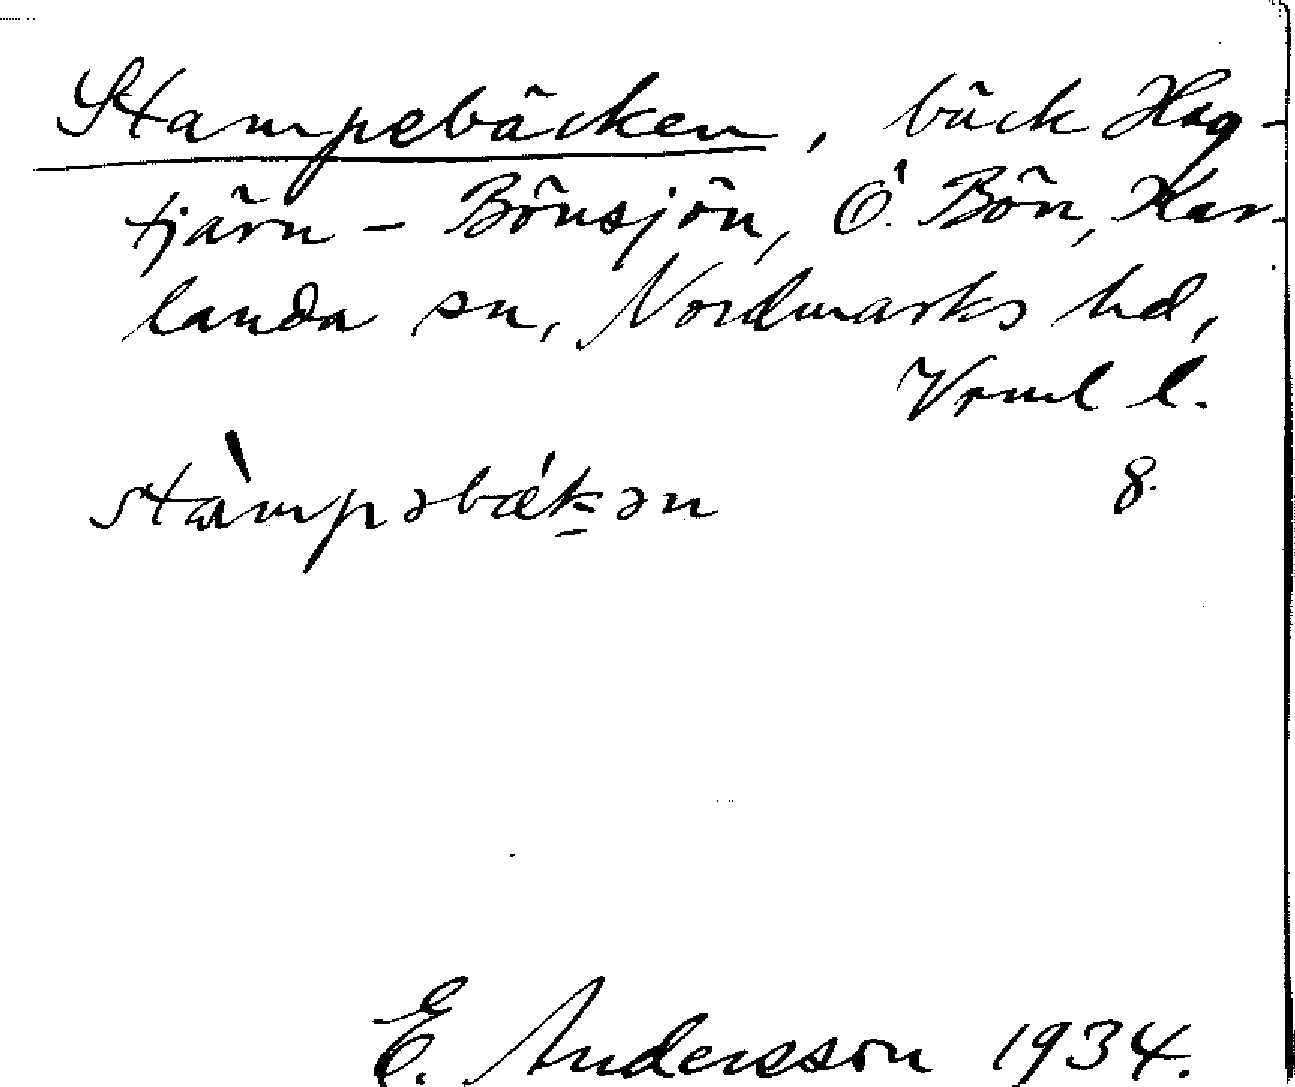 Stampebäcken, bäck Hag-
tjärn - Bönsjön, Ö. Bön, Kar-
landa sn, Nordmarks hd,
Vrml l.
stàmpəbǽkən 8.
E. Andersson 1934.